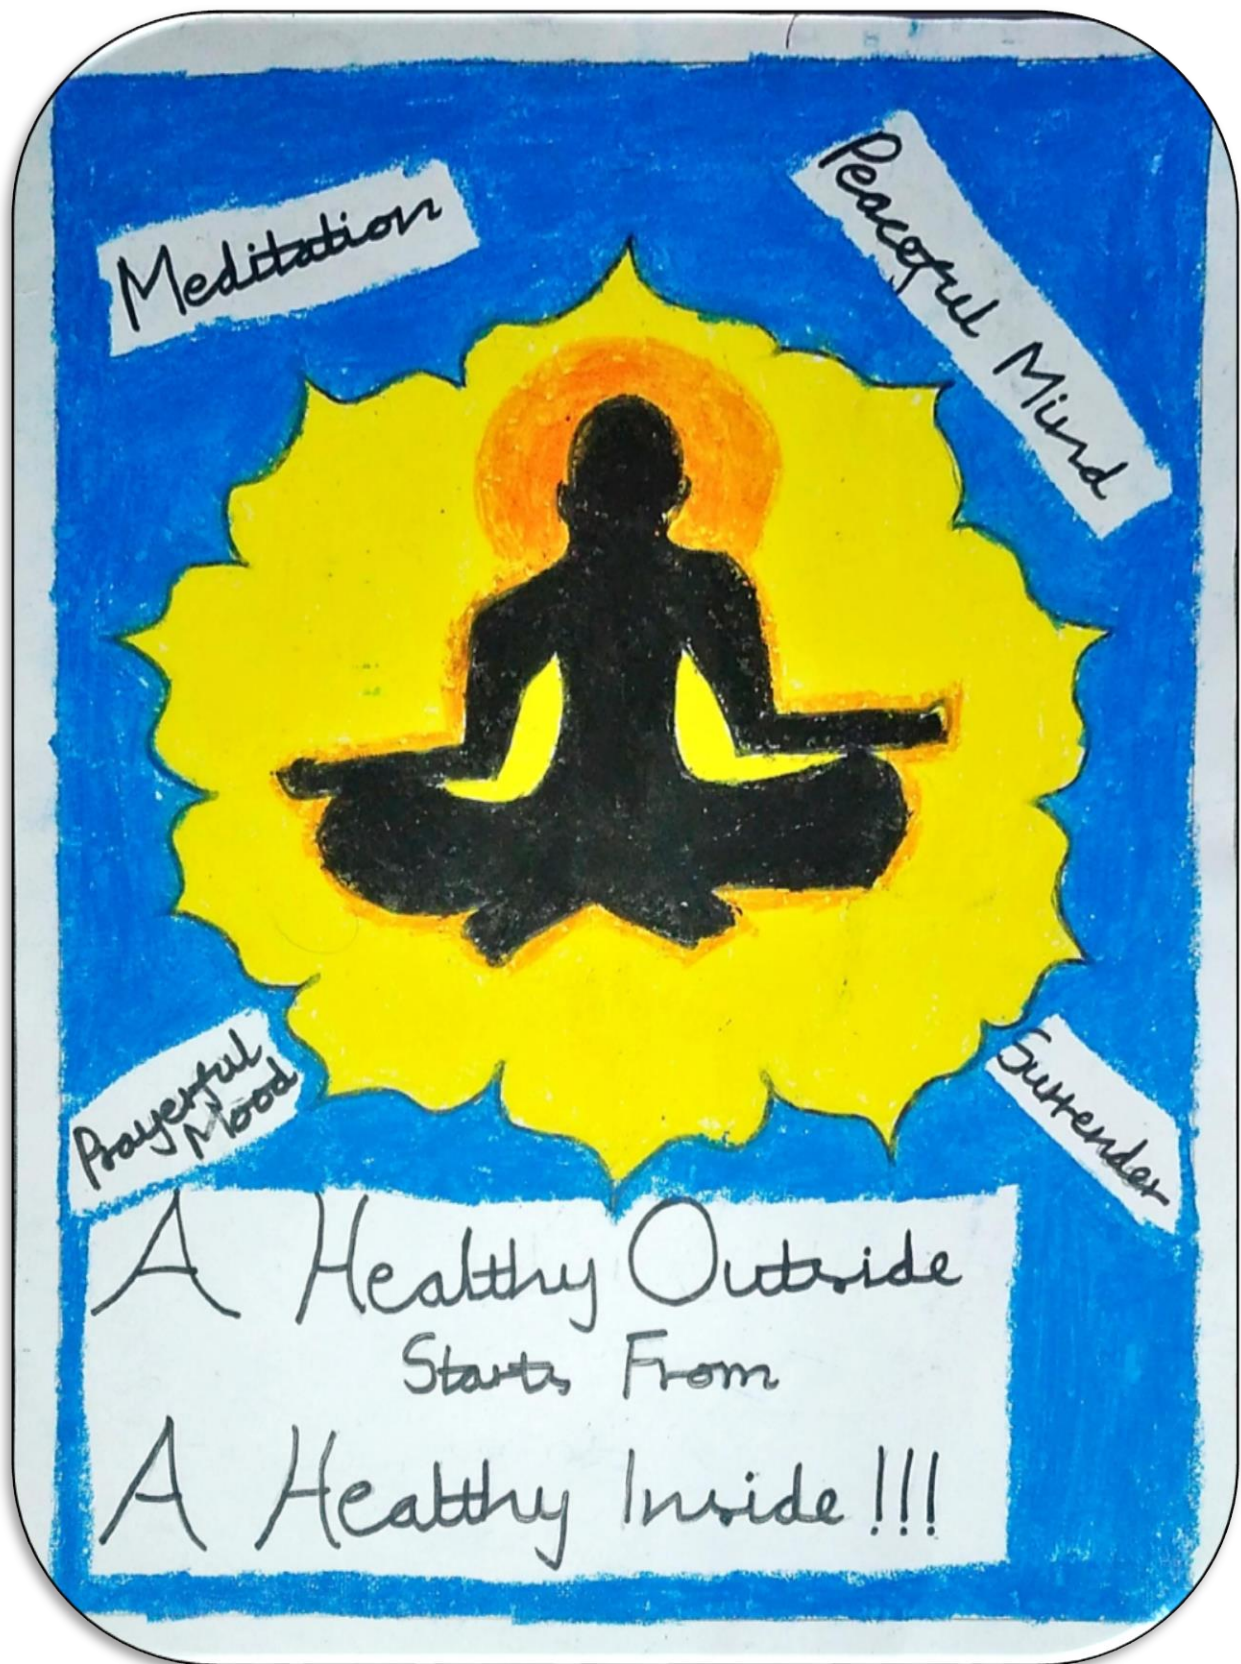 Meditation
Peaceful Mind
Prayerful
Mood
Surrender
A Healthy Outside
Starts From
A Healthy Inside!!!